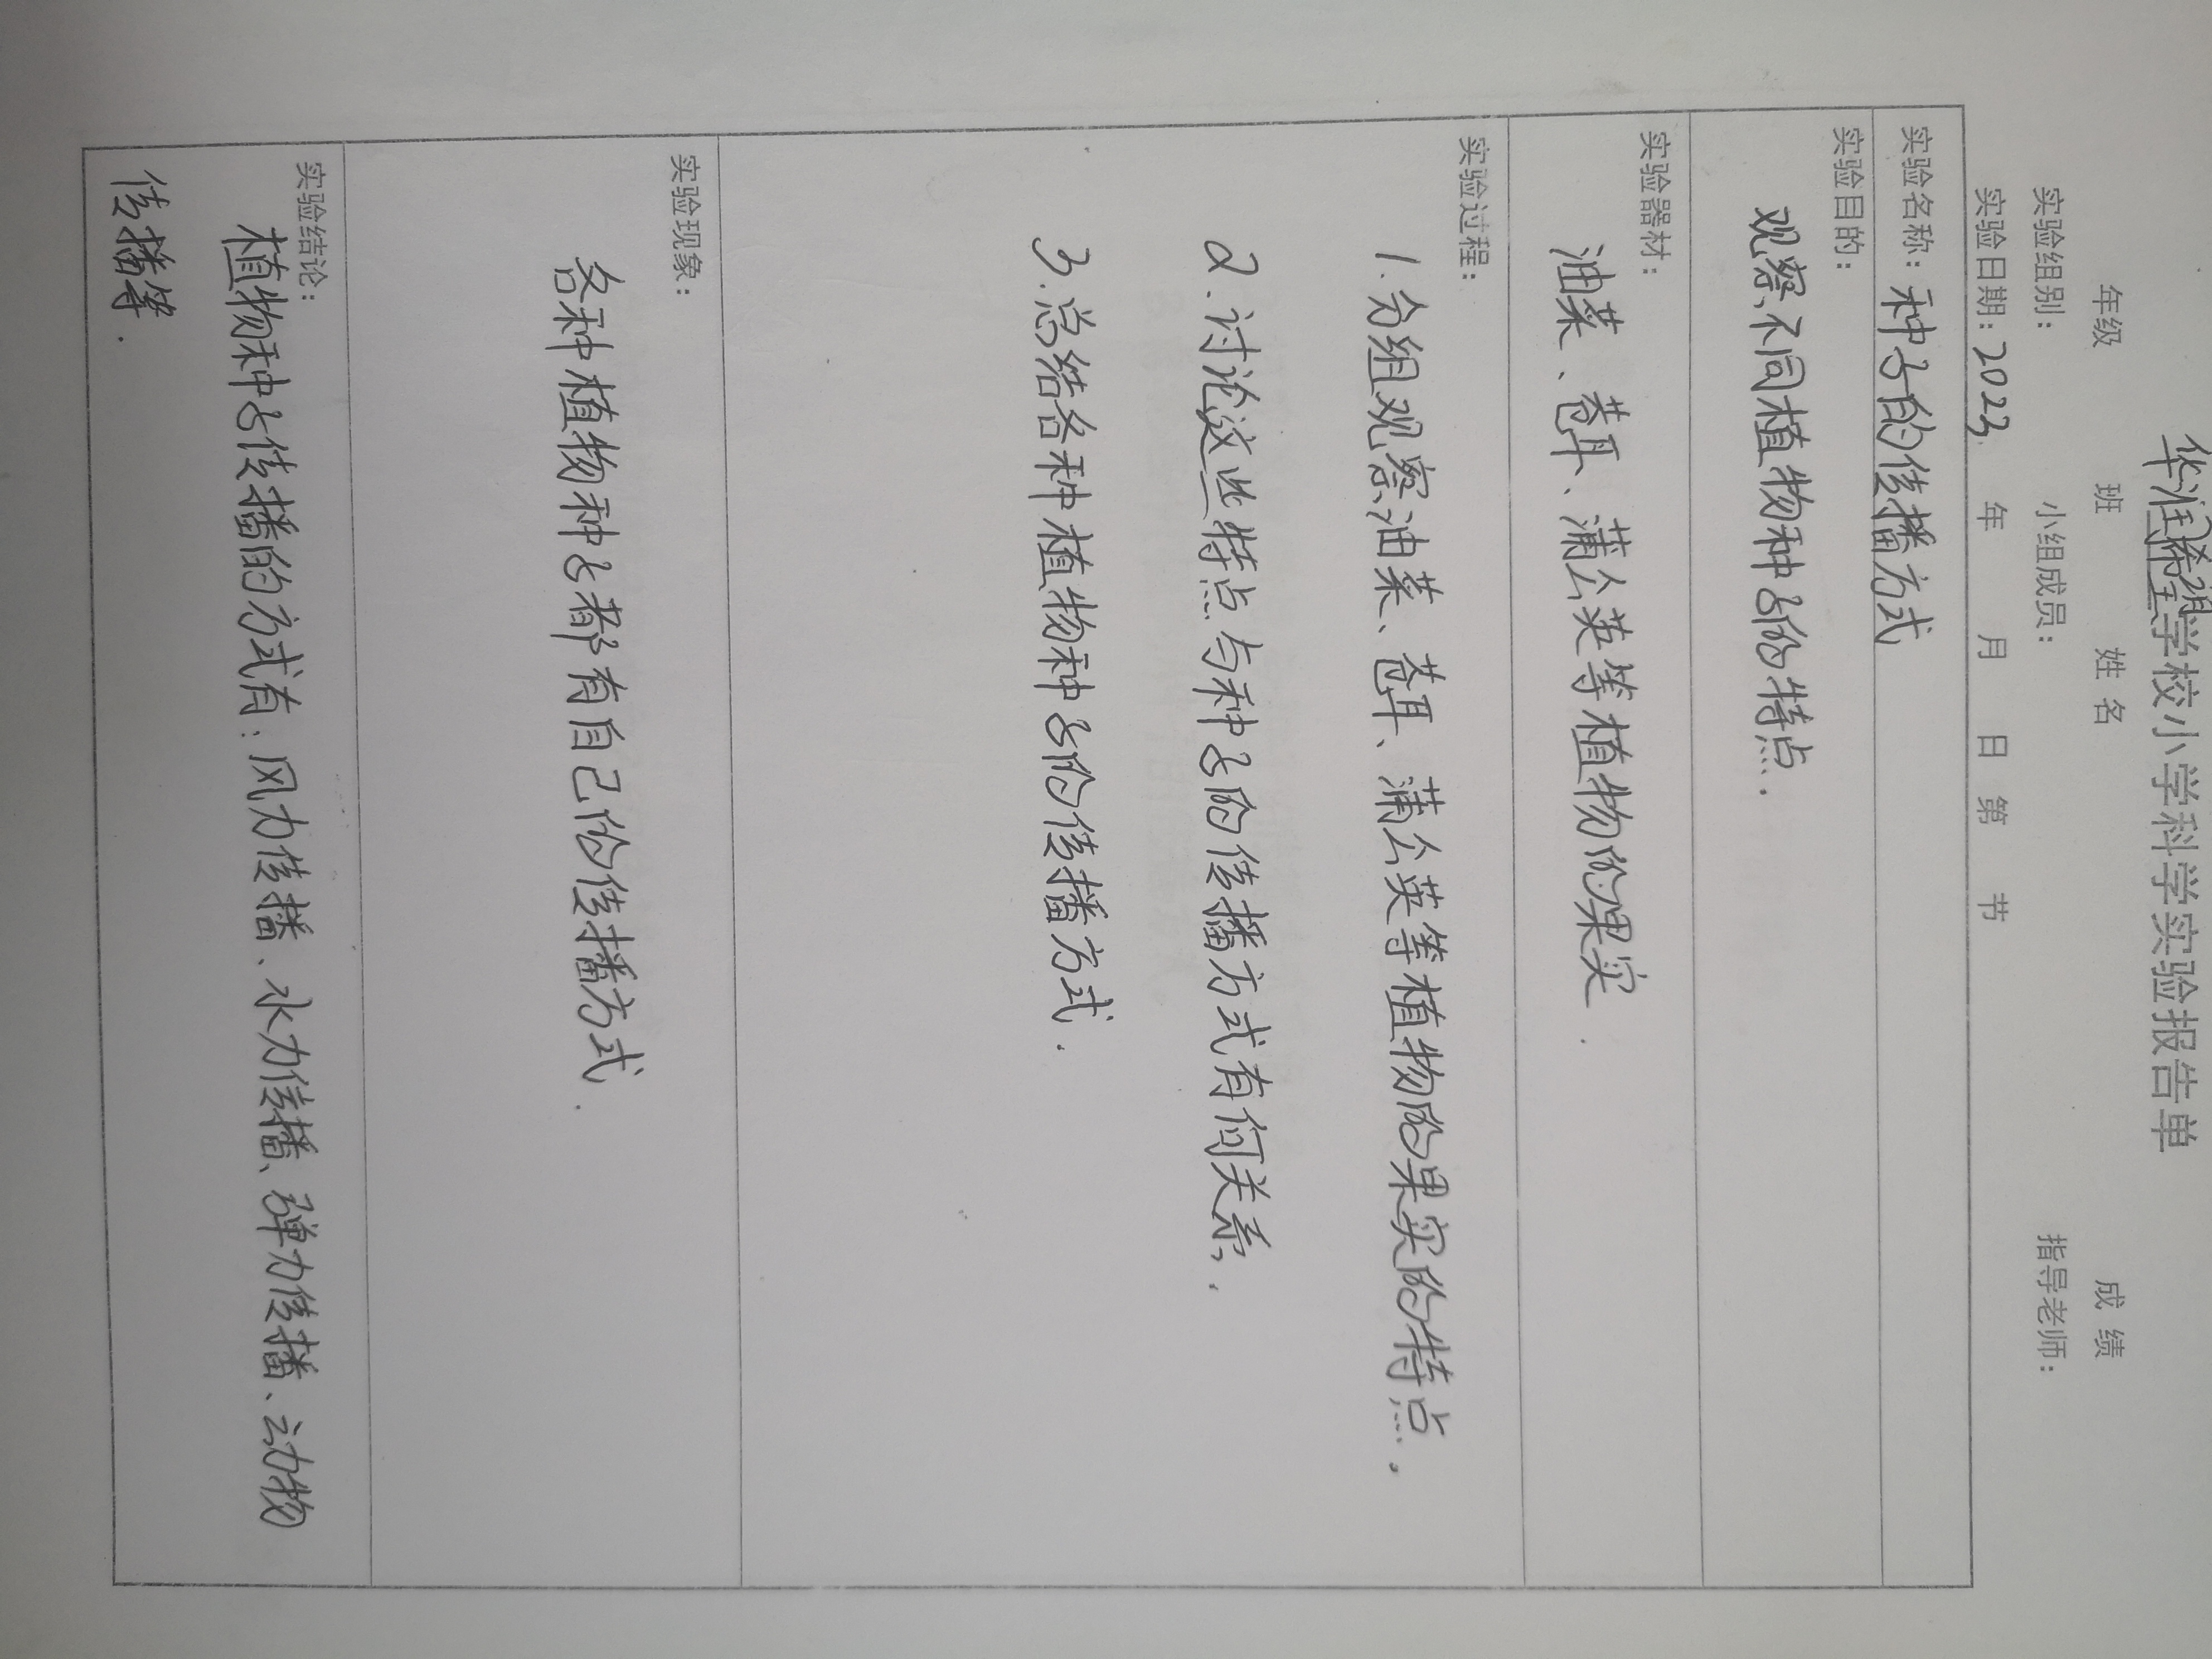 华润希望学校小学科学实验报告单
年级 班 姓名 成绩
实验组别： 小组成员： 指导老师：
实验日期：2023 年 月 日 第 节
实验名称：种子的传播方式
实验目的：
观察不同植物种子的特点.
实验器材：
油菜、苍耳、蒲公英等植物的果实.
实验过程：
1.分组观察油菜、苍耳、蒲公英等植物的果实的特点.
2.讨论这些特点与种子的传播方式有何关系.
3.总结各种植物种子的传播方式.
实验现象：
各种植物种子都有自己的传播方式.
实验结论：
植物种子传播的方式有：风力传播、水力传播、弹力传播、动物
传播等.